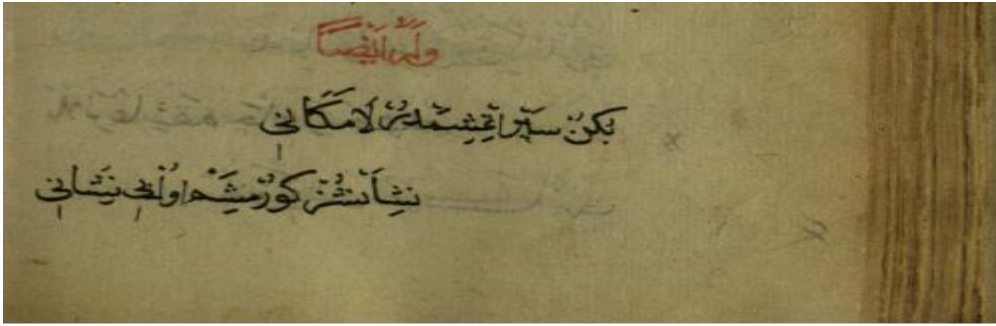 وله ايضا
بكن سير اتمشمدر لامكانى
نشانسز كورمشم اول بى نشانى